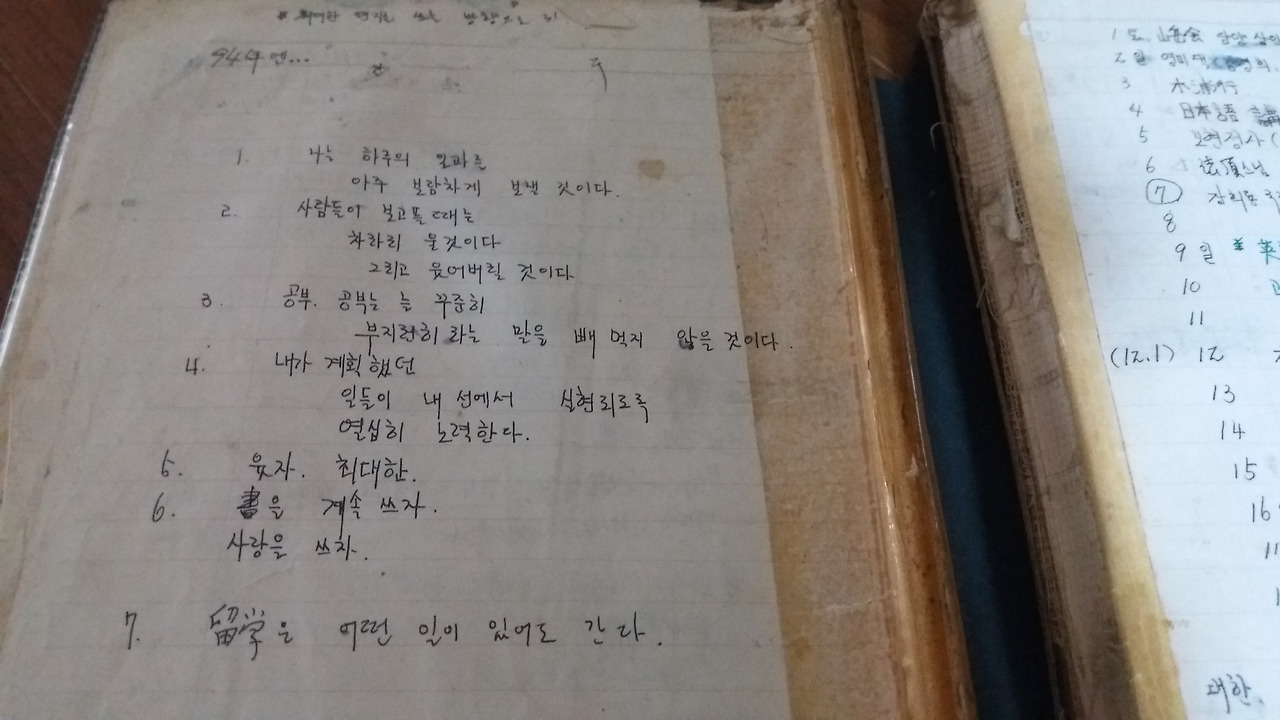 94年엔...
1. 나는 하루의 일과를
아주 보람차게 보낼 것이다.
2. 사람들이 보고플 때는
차라리 울것이다
그리고 웃어버릴 것이다
3. 공부. 공부는 늘 꾸준히
부지런히 라는 말을 빼 먹지 않을 것이다.
4. 내가 계획했던
일들이 내 선에서 실현되도록
열심히 노력한다.
5. 웃자. 최대한.
6. 書을 계속 쓰자.
사랑을 쓰자.
7. 留学은 어떤 일이 있어도 간다.
1일 山岳会
2일
3 木浦行
4 日本語
5 보현정사 (
6 法頂스님
7
8
9일 * 英
10
11
(12.1) 12
13
14
15
16
대한.